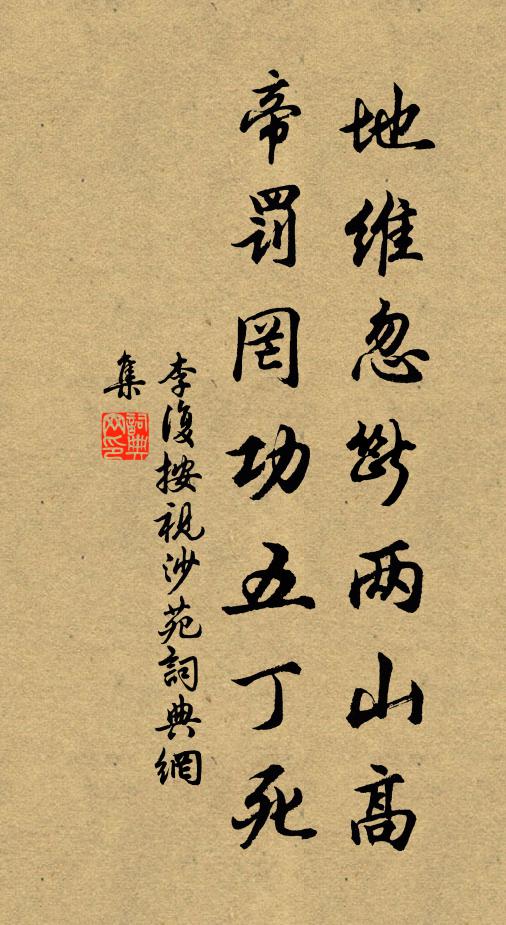 地维忽斷两山高
帝罰罔功五丁死
李復按視沙苑詞典網
集
詞典
网印